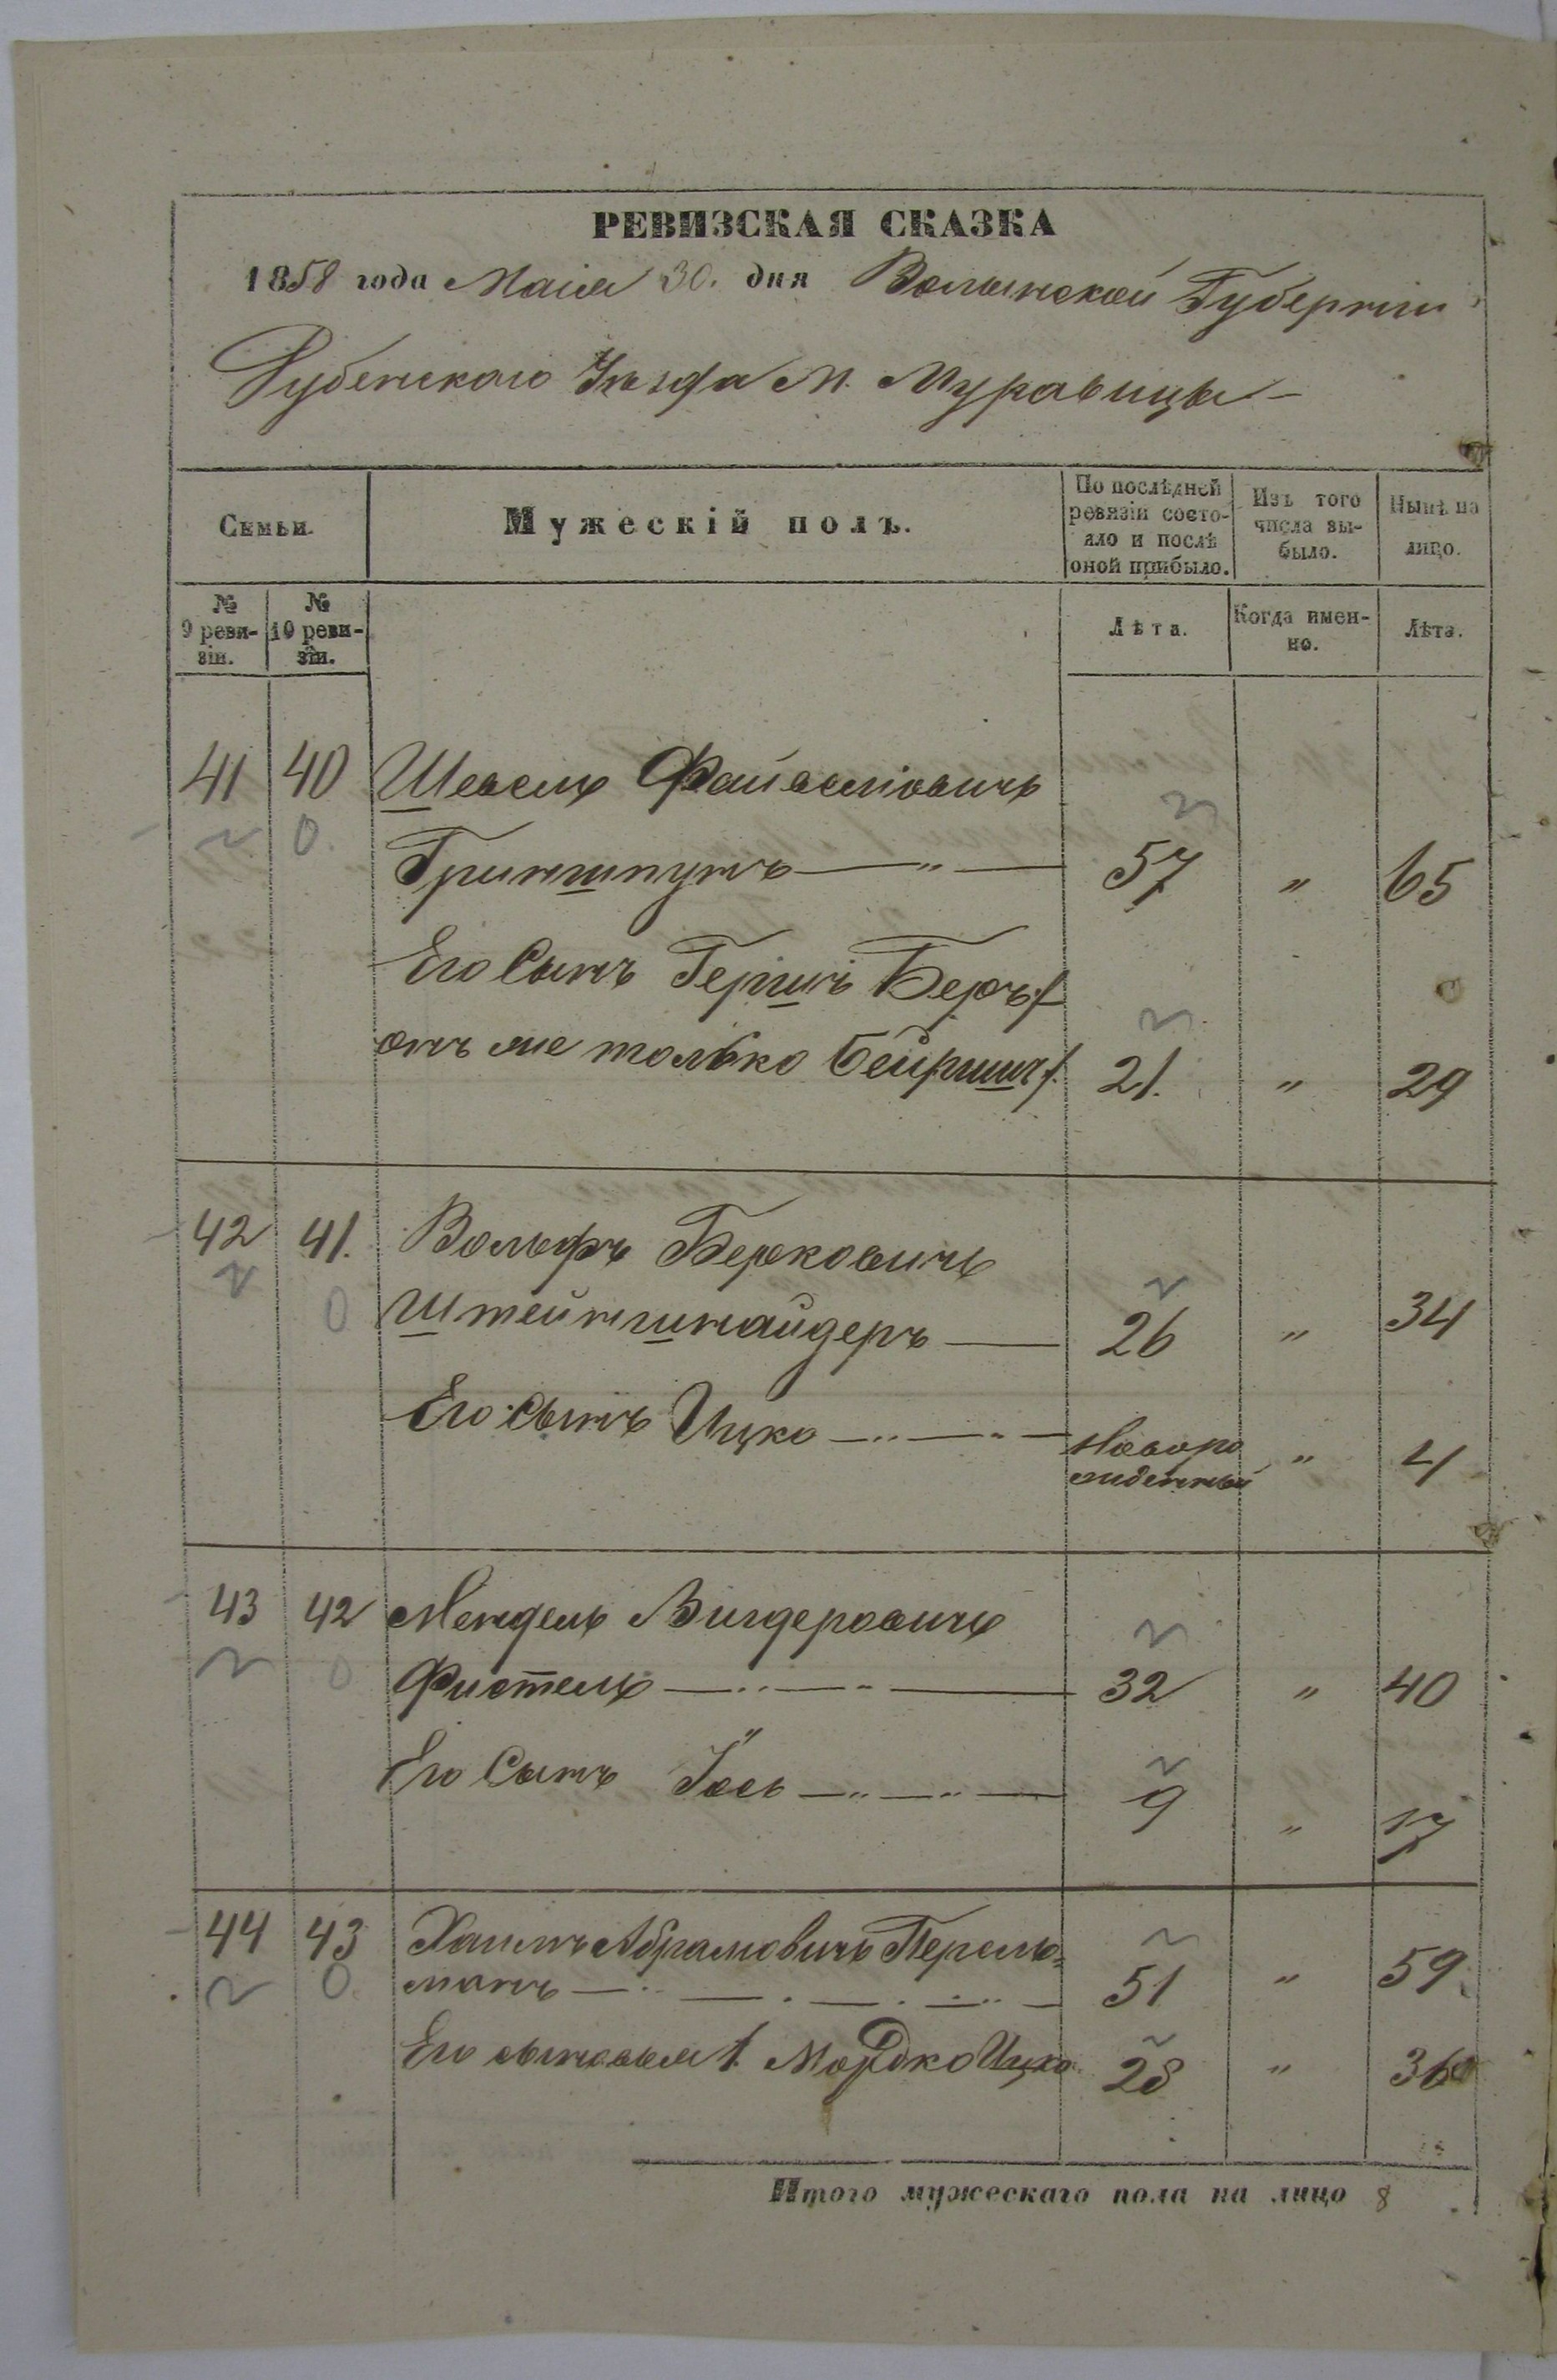 РЕВИЗСКАЯ СКАЗКА
1858 года Маія 30. дня Волынской Губерніи
Дубенскаго Уѣзда М. Муравицы
Семьи.
Мужескій полъ.
По послѣдней
ревизіи состо-
яло и послѣ
оной прибыло.
Изъ того
числа вы-
было.
Нынѣ на
лицо.
№
9 реви-
зіи.
№
10 реви-
зіи.
Лѣта.
Когда имен-
но.
Лѣта.
41 40 Шевель Файвеліовичъ
Гриншпунъ — " — 57 " 65
Его Сынъ Гершъ Беръ
онъ же только Бейришъ 21. " 29
42 41. Вольфъ Берковичъ
Штейншнайдеръ — 26 " 34
Его Сынъ Ицко — " — " — Новоро
жденный " 4
43 42 Мендель Вигдеровичъ
Фистель — " — " — 32 " 40
Его Сынъ Іось — " — " — 9 " 17
44 43 Хаимъ Абрамовичъ Перель=
манъ — 51 " 59
Его сыновья 1. Мордко Ицко 28 " 36
Итого мужескаго пола на лицо 8